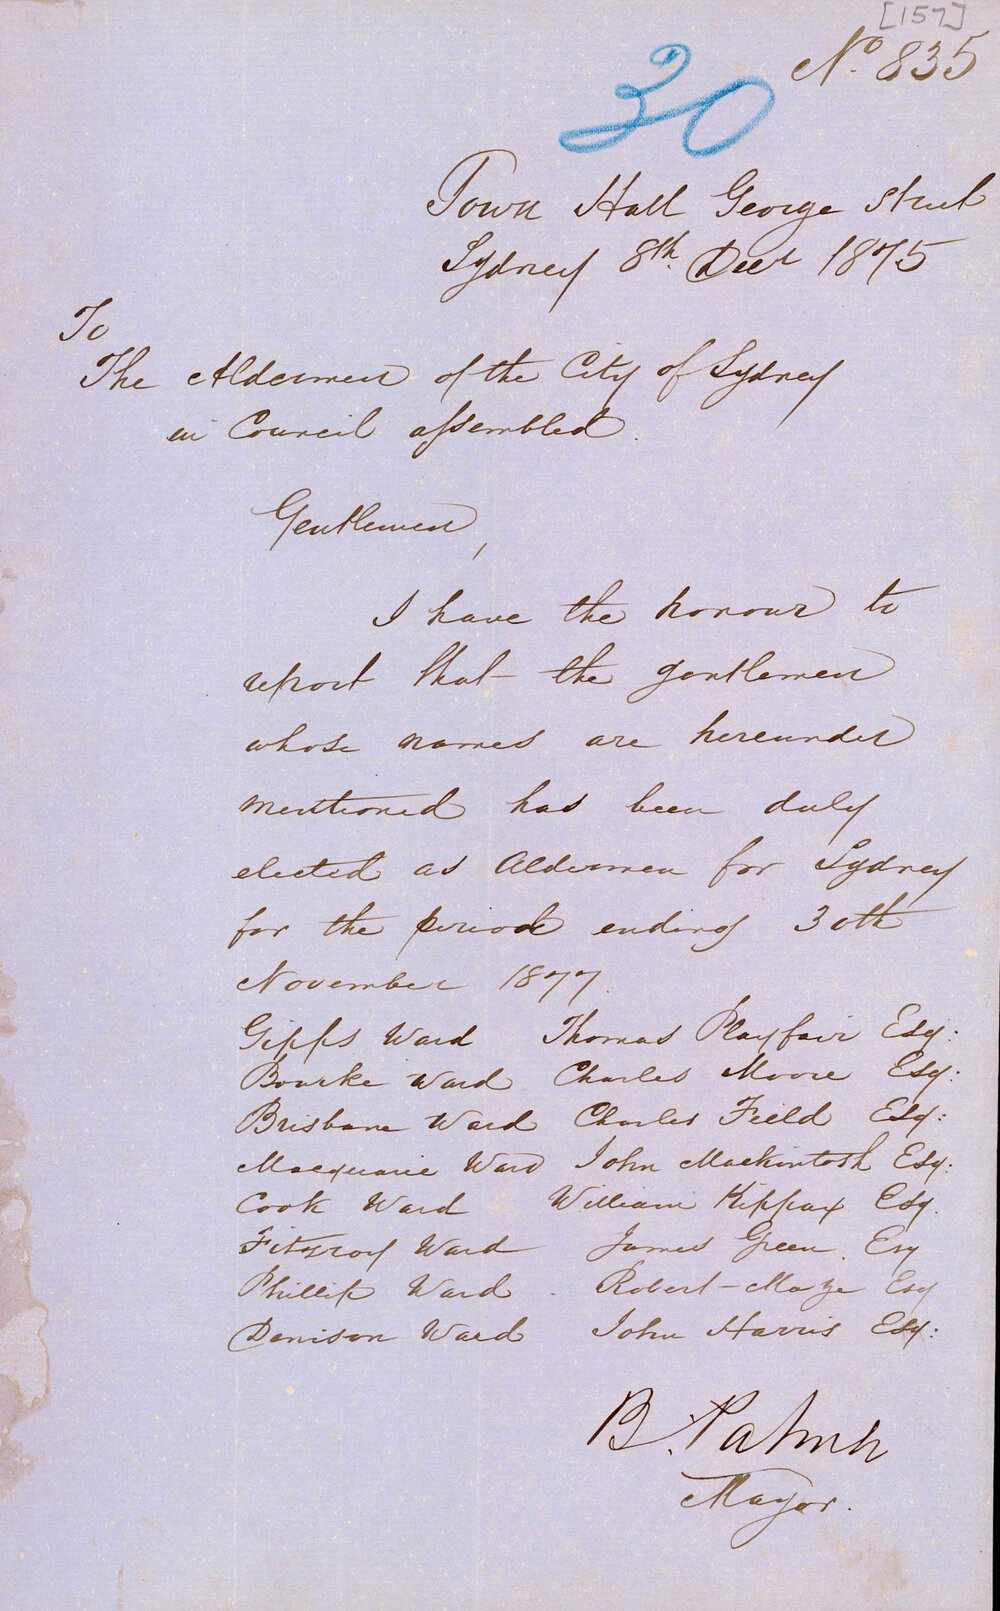 [157]
No. 835
30
Town Hall George Street
Sydney 8th Decr 1875
To
The Aldermen of the City of Sydney
in Council assembled.
Gentlemen,
I have the honour to
report that the gentlemen
whose names are hereunder
mentioned has been duly
elected as Aldermen for Sydney
for the period ending 30th
November 1877.
Gipps Ward Thomas Playfair Esq:
Bourke Ward Charles Moore Esq:
Brisbane Ward Charles Field Esq:
Macquarie Ward John Mackintosh Esq:
Cook Ward William Kippax Esq.
Fitzroy Ward James Green. Esq
Phillip Ward. Robert Maze Esq
Denison Ward John Harris Esq:
B. Palmer
Mayor.